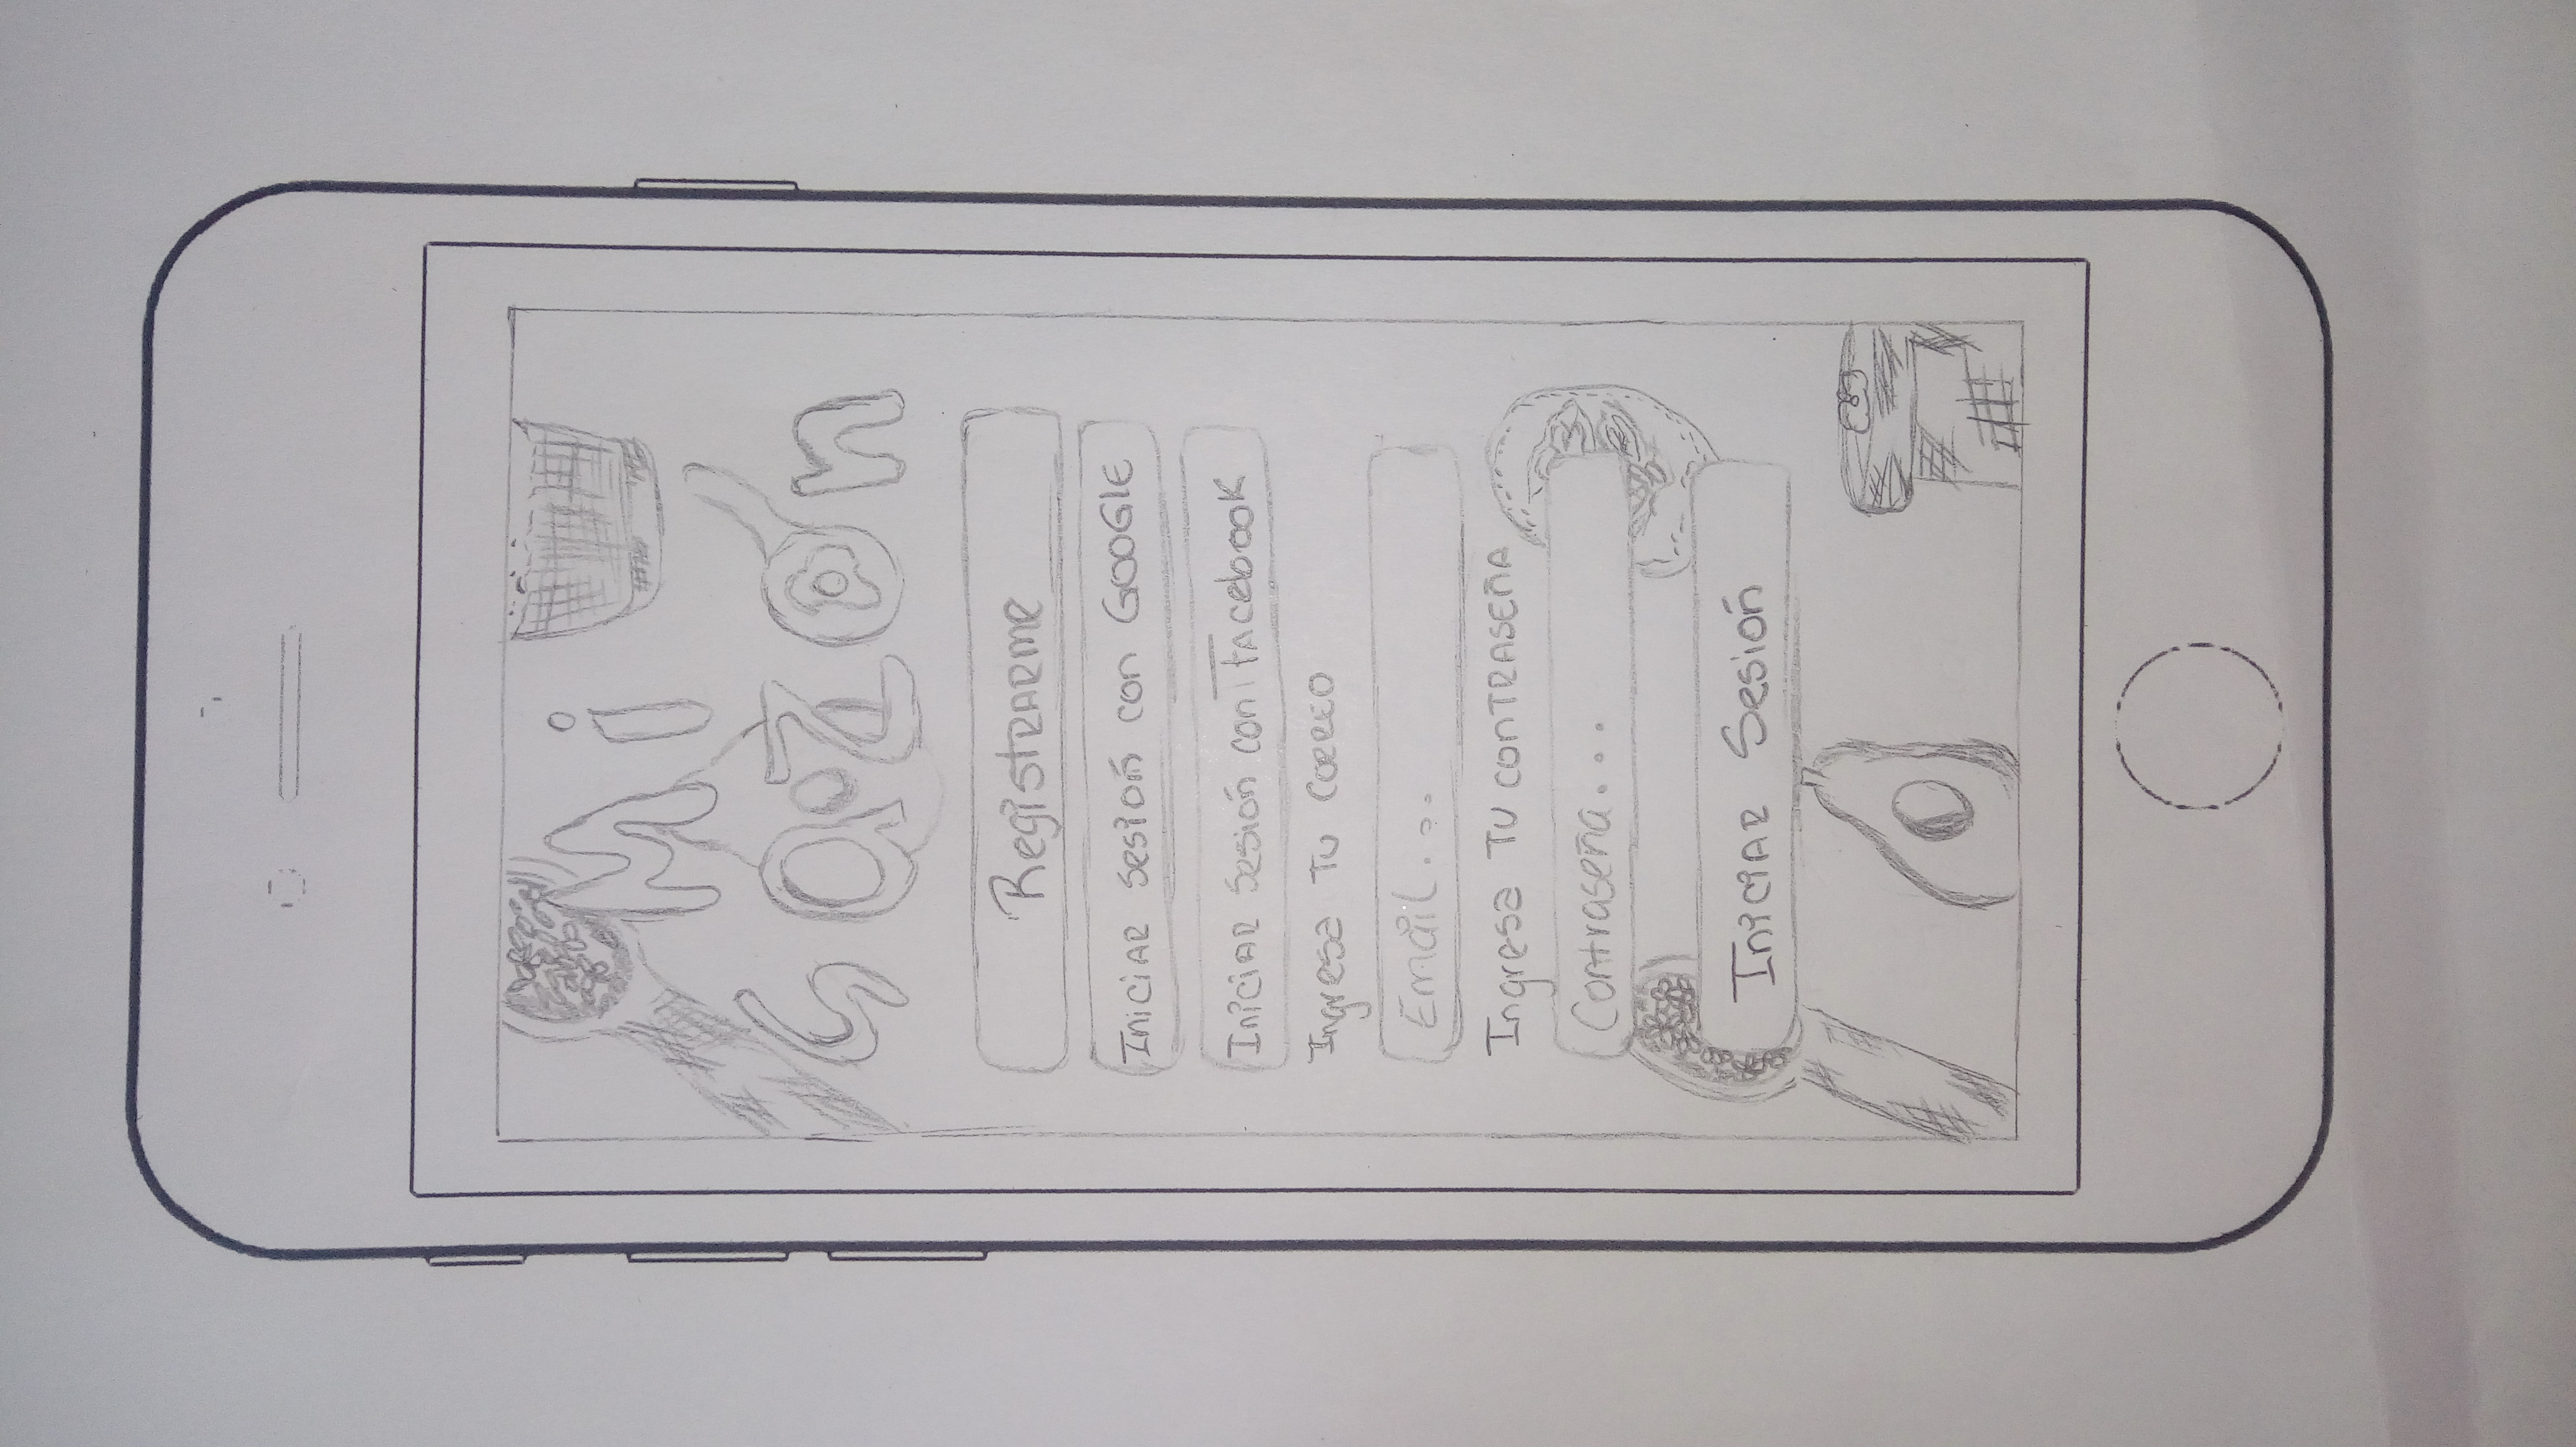 Mi
Sazón
Registrarme
Iniciar sesión con GOOGLE
Iniciar sesión con Facebook
Ingresa tu correo
Email...
Ingresa tu contraseña
Contraseña...
Iniciar Sesión